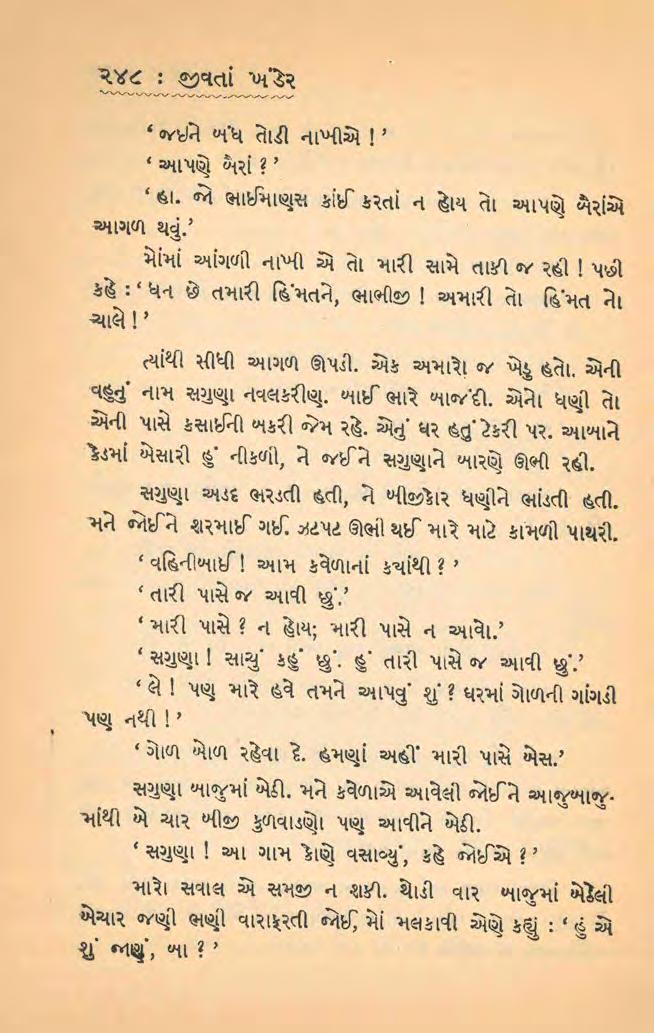 ૨૪૮ : જીવતાં ખંડેર
‘ જઈને બંધ તોડી નાખીએ ! ’
‘ આપણે બૈરાં ? ’
‘ હા. જો ભાઈમાણસ કાંઈ કરતાં ન હોય તો આપણે બૈરાંએ
આગળ થવું.’
મોંમાં આંગળી નાખી એ તો મારી સામે તાકી જ રહી ! પછી
કહે : ‘ ધન છે તમારી હિંમતને, ભાભીજી ! અમારી તો હિંમત નો
ચાલે ! ’
ત્યાંથી સીધી આગળ ઊપડી. એક અમારો જ ખેડુ હતો. એની
વહુનું નામ સગુણા નવલકરીણ. બાઈ ભારે બાજંદી. એનો ધણી તો
એની પાસે કસાઈની બકરી જેમ રહે. એનું ઘર હતું ટેકરી પર. આબાને
કેડમાં બેસારી હું નીકળી, ને જઈને સગુણાને બારણે ઊભી રહી.
સગુણા અડદ ભરડતી હતી, ને બીજીકોર ધણીને ભાંડતી હતી.
મને જોઈને શરમાઈ ગઈ. ઝટપટ ઊભી થઈ મારે માટે કામળી પાથરી.
‘ વહિનીબાઈ ! આમ કવેળાનાં ક્યાંથી ? ’
‘ તારી પાસે જ આવી છું.’
‘ મારી પાસે ? ન હોય; મારી પાસે ન આવો.’
‘ સગુણા ! સાચું કહું છું. હું તારી પાસે જ આવી છું.’
‘ લે ! પણ મારે હવે તમને આપવું શું ? ઘરમાં ગોળની ગાંગડી
પણ નથી ! ’
‘ ગોળ બોળ રહેવા દે. હમણાં અહીં મારી પાસે બેસ.’
સગુણા બાજુમાં બેઠી. મને કવેળાએ આવેલી જોઈને આજુબાજુ-
માંથી બે ચાર બીજી કુળવાડણો પણ આવીને બેઠી.
‘ સગુણા ! આ ગામ કોણે વસાવ્યું, કહે જોઈએ ? ’
મારો સવાલ એ સમજી ન શકી. થોડી વાર બાજુમાં બેઠેલી
બેચાર જણી ભણી વારાફરતી જોઈ, મોં મલકાવી એણે કહ્યું : ‘ હું એ
શું જાણું, બા ? ’